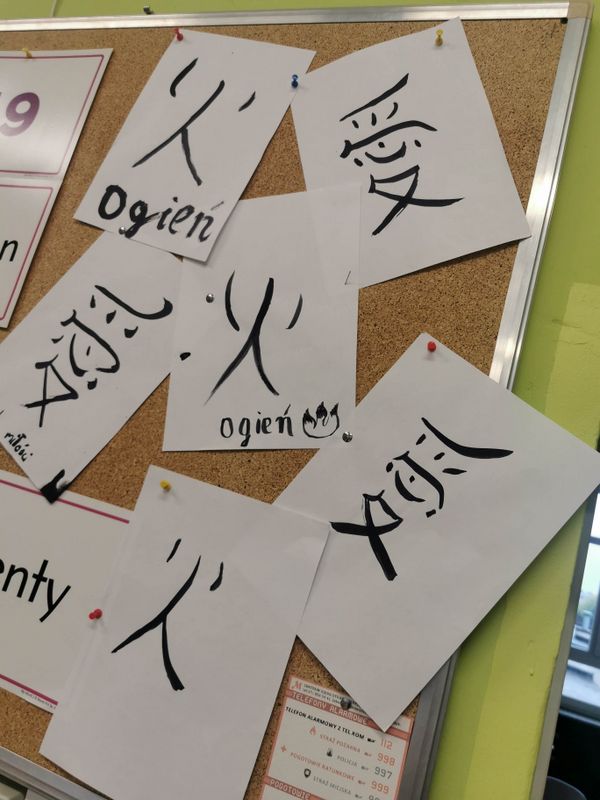 19
火
Ogień
愛
n
愛
miłość
火
ogień
愛
enty
火
TELEFONY ALARMOWE
TELEFON ALARMOWY Z TEL.KOM 112
STRAŻ POŻARNA 998
POLICJA 997
POGOTOWIE RATUNKOWE 999
STRAŻ MIEJSKA
POGOTOWIE